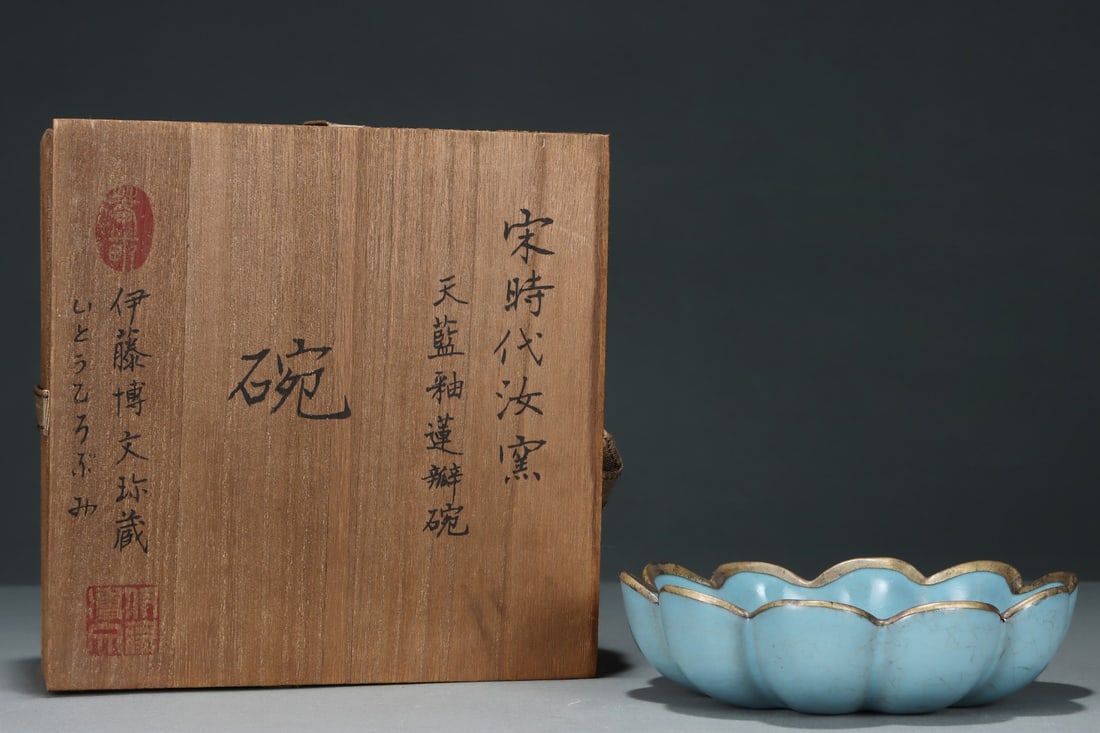 宋時代汝窯
天藍釉蓮瓣碗
碗
伊藤博文珎蔵
いとうひろぶみ